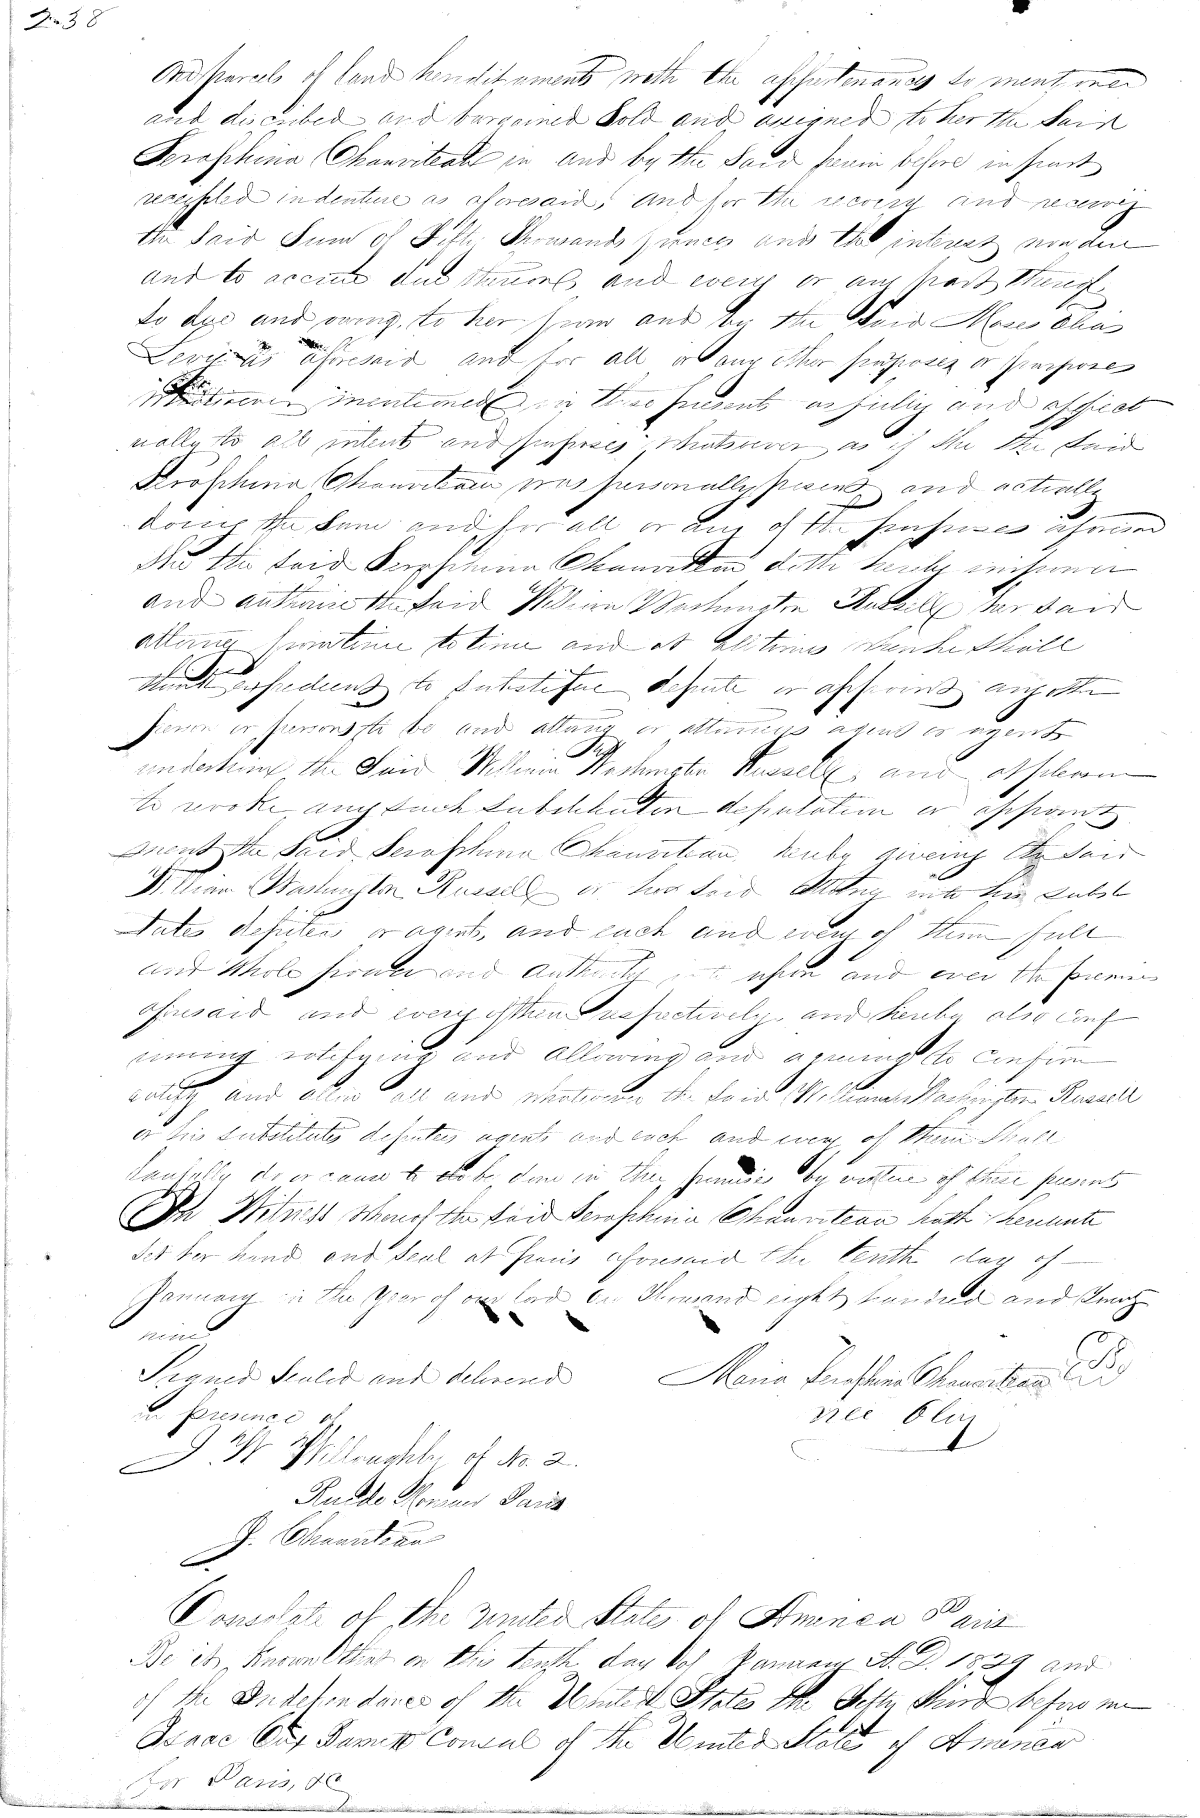 238
and parcels of land hereditaments with the appurtenances so mentioned
and discribed and bargained Sold and assigned to her the Said
Seraphina Chauviteau in and by the Said herein before in part
recipted indenture as aforesaid, and for the recovery and receiving
the Said Sum of Fifty Thousands frances and the interest now due
and to accrue due thereon, and every or any part thereof
So due and owing to her from and by the Said Moses Elias
Levy as aforesaid and for all or any other purposes or purposes
Whatsoever mentioned in these presents as fully and effect
ually to all intents and purposes whatsoever as if She the Said
Seraphina Chauviteau was personally present and actually
doing the Same and for all or any of the purposes aforesaid
She the Said Seraphina Chauviteau doth hereby impower
and authorise the Said William Washington Russell her Said
attorney from time to time and at all times when he Shall
think expedient to Substitute depute or appoint any other
person or persons to be and attorney or attorneys agent or agents
under him the Said William Washington Russell, and at pleasure
to revoke any such Substitution deputation or appoint
ment the Said Seraphina Chauviteau hereby giveing the Said
William Washington Russell or her Said attorney into his Substi
tutes deputies or agents, and each and every of them full
and Whole power and authority upon and over the premises
aforesaid and every of them respectively, and hereby also conf
irming ratifying and allowing and agreeing to confirm
ratify and allow all and whatsoever the Said William Washington Russell
or his substitutes deputies agents and each and every of them Shall
lawfully do or cause to be done in the premises by virtue of these presents
In Witness whereof the Said Seraphina Chauviteau hath hereunto
Set her hand and Seal at Paris aforesaid the tenth day of
January in the year of our lord one Thousand eight hundred and Twenty
nine
Signed Sealed and delivered Maria Seraphina Chauviteau
in presence of nee Aloy
J W Willoughby of No. 2.
Rue de Paris
J. Chauviteau
Consolate of the United States of America Paris
Be it Known that on this tenth day of January A.D. 1829 and
of the Independance of the United States the Fifty third before me
Isaac Cox Barnett Consul of the United States of America
for Paris, &c